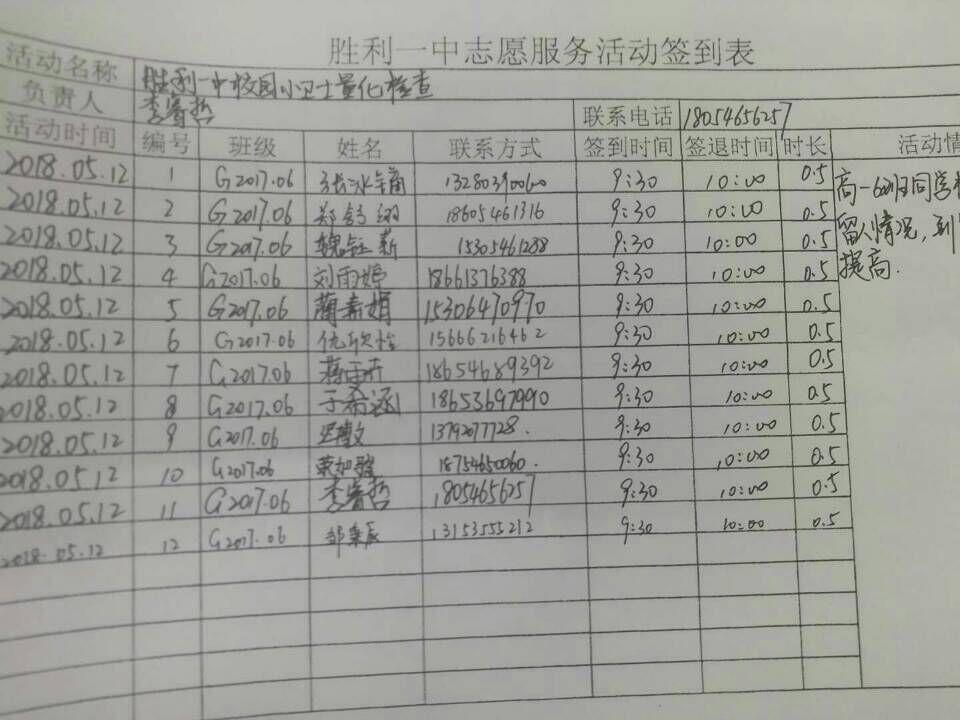 胜利一中志愿服务活动签到表
活动名称 胜利一中校园小卫士量化检查
负责人 李睿哲 联系电话 18054656257
活动时间 编号 班级 姓名 联系方式 签到时间 签退时间 时长 活动情
2018.05.12 1 G2017.06 13280390060 9:30 10:00 0.5 高一6班同学
2018.05.12 2 G2017.06 18605461316 9:30 10:00 0.5 留人情况,到
2018.05.12 3 G2017.06 魏钰新 15305461288 9:30 10:00 0.5 提高.
2018.05.12 4 G2017.06 刘雨婷 18661376388 9:30 10:00 0.5
2018.05.12 5 G2017.06 蔺素娟 15306470970 9:30 10:00 0.5
2018.05.12 6 G2017.06 15666216462 9:30 10:00 0.5
2018.05.12 7 G2017.06 18654689392 9:30 10:00 0.5
2018.05.12 8 G2017.06 于希涵 18653697990 9:30 10:00 0.5
2018.05.12 9 G2017.06 13792077728. 9:30 10:00 0.5
2018.05.12 10 G2017.06 18754650060. 9:30 10:00 0.5
2018.05.12 11 G2017.06 李睿哲 18054656257 9:30 10:00 0.5
2018.05.12 12 G2017.06 邹秉辰 13153555212 9:30 10:00 0.5